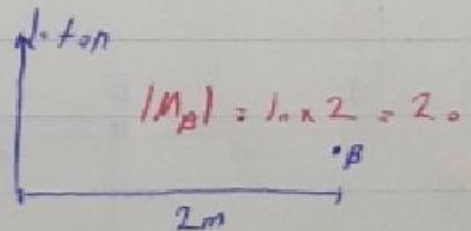 10 ton
|M_B| = 10 × 2 = 20
B
2m